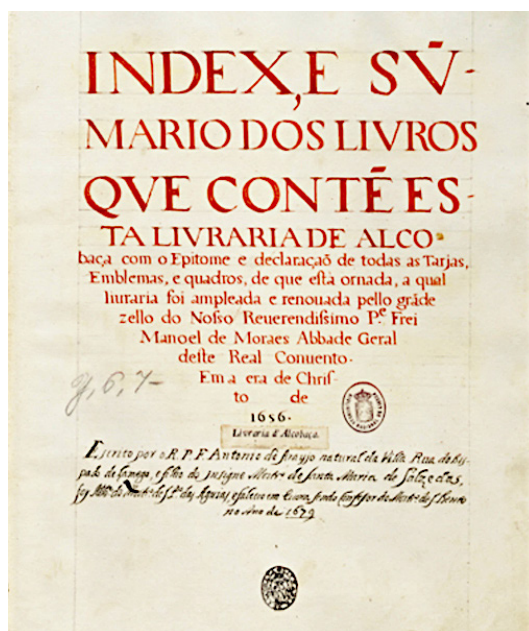 INDEX, E SV̄-
MARIO DOS LIVROS
QVE CONTĒ ES-
TA LIVRARIA DE ALCO-
baça com o Epitome e declaraçaõ de todas as Tarjas,
Emblemas, e quadros, de que eſtà ornada, a qual
liuraria foi ampleada e renouada pello grãde
zello do Noſſo Reuerendiſſimo P.e Frei
Manoel de Moraes Abbade Geral
deſte Real Conuento.
Em a era de Chriſ-
to de
1656.
Livraria d'Alcobaça.
Eſcrito por o R. P. F. Antonio de Araujo natural da Villa Rua do Biſ-
pado de Lamego, e filho do inſigne Moſtr.o de Santa Maria de Salzedas,
foy do Moſtr.o de S. das Aguias, e falleceo em sendo Confeſſor do Moſtr.o de S. Bento
no Anno de 1679